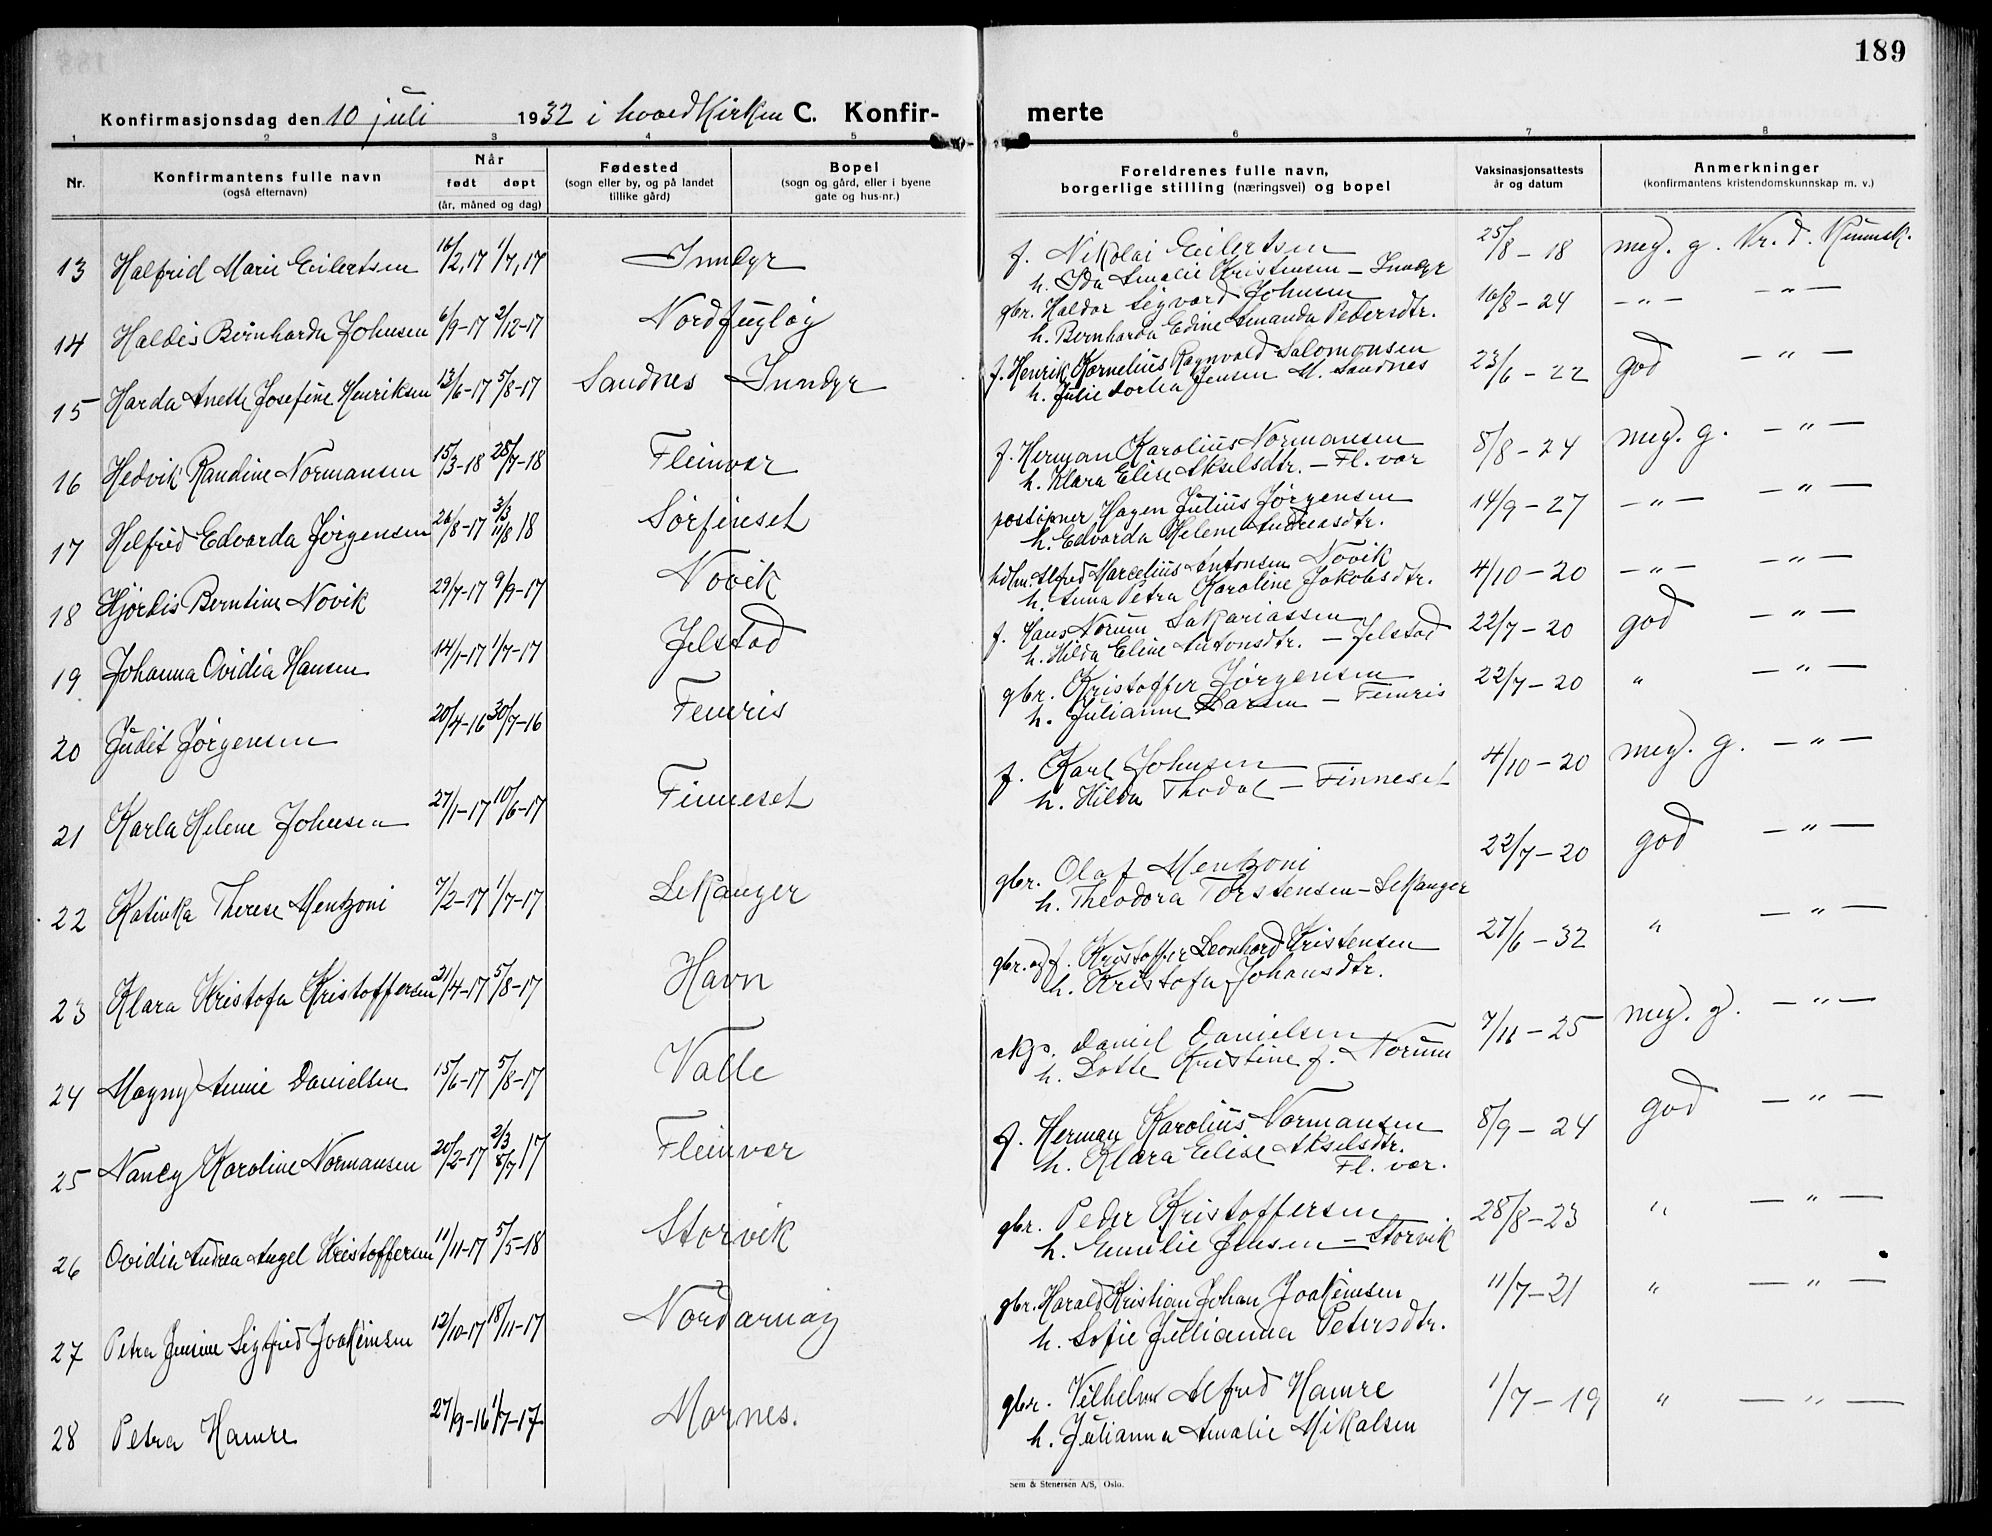 189
Konfirmasjonsdag den 10 juli 1932 i hovedkirken C. Konfir-
merte
1 2 3 4 5 6 7 8
Nr.
Konfirmantens fulle navn
(også efternavn)
Når
født døpt
(år, måned og dag)
Fødested
(sogn eller by, og på landet
tillike gård)
Bopel
(sogn og gård, eller i byene
gate og hus-nr.)
Foreldrenes fulle navn,
borgerlige stilling (næringsvei) og bopel
Vaksinasjonsattests
år og datum
Anmerkninger
(konfirmantens kristendomskunnskap m. v.)
13 Halfrid Marie Eilertsen 16/2,17 1/7,17 Inndyr
f. Nikolai Eilertsen 25/8 – 18 meg. g. Kr.d. Kunnsk.
h. Ida Amalie Kristensen – Inndyr
14 Haldis Bernharda Johnsen 6/9-17 2/12-17 Nordfugløy
gbr. Haldor Sigvard Johnsen 16/8 – 24 – " – – " –
h. Bernharda Edine Amanda Pedersdtr.
15 Harda Anette Josefine Henriksen 13/6-17 5/8-17 Sandnes Inndyr
f. Henrik Kornelius Ragnvald Salomonsen 23/6 – 22 god – " –
h. Julie Dorthea Jensen M. Sandnes
16 Hedvik Randine Normansen 15/3-18 28/7-18 Fleinvær
f. Herman Karolius Normansen 8/8 – 24 meg. g. – " –
h. Klara Elise Akselsdtr. – Fl.vær
17 Helfrid Edvarda Jørgensen 26/8-17 3/3 11/8 18 Sørfinset
poståpner Hagen Julius Jørgensen 14/9 – 27 – " – – " –
h. Edvarda Helene Andreasdtr.
18 Hjørdis Berntine Novik 29/7-17 9/9-17 Novik
hdlm. Alfred Marcelius Antonsen Novik 4/10 – 20 – " – – " –
h. Anna Petra Karoline Jakobsdtr.
19 Johanna Ovidia Hansen 14/1-17 1/7-17 Jelstad
f. Hans Norum Sakariassen 22/7 – 20 god – " –
h. Hilda Eline Antonsdtr. – Jelstad
20 Judit Jørgensen 20/4-16 30/7-16 Femris
gbr. Kristoffer Jørgensen 22/7 – 20 " – " –
h. Julianne Larsen – Femris
21 Karla Helene Johnsen 27/1-17 10/6-17 Finneset
f. Karl Johnsen 4/10 – 20 meg. g. – " –
h. Hilda Thodal – Finneset
22 Katinka Therese Mentzoni 7/2-17 1/7-17 Lekanger
gbr. Olaf Mentzoni 22/7 – 20 god – " –
h. Theodora Torstensen – Lekanger
23 Klara Kristofa Kristoffersen 21/4-17 5/8-17 Havn
gbr. og f. Kristoffer Leonhard Kristensen 27/6 – 32 " – " –
h. Kristofa Johansdtr.
24 Magny Annie Danielsen 15/6-17 5/8-17 Valle
Daniel Danielsen 7/11 – 25 meg. g. – " –
h. Lotte Kristine f. Norum
25 Nancy Karoline Normansen 20/2-17 2/3 8/7 17 Fleinvær
f. Herman Karolius Normansen 8/9 – 24 god – " –
h. Klara Elise Akselsdtr.
Fl. vær.
26 Ovidia Andrea Angel Kristoffersen 11/11-17 5/5-18 Storvik
gbr. Peder Kristoffersen 28/8 – 23 " – " –
h. Emilie Jensen – Storvik
27 Petra Jensine Sigfrid Joakimsen 12/10-17 18/11-17 Nordarnøy
gbr. Harald Kristian Johan Joakimsen 11/7 – 21 " – " –
h. Sofie Julianna Petersdtr.
28 Petra Hamre 27/9-16 1/7-17 Mårnes.
gbr. Vilhelm Alfred Hamre 1/7 – 19 " – " –
h. Julianna Amalie Mikalsen
Sem & Stenersen A/S, Oslo.